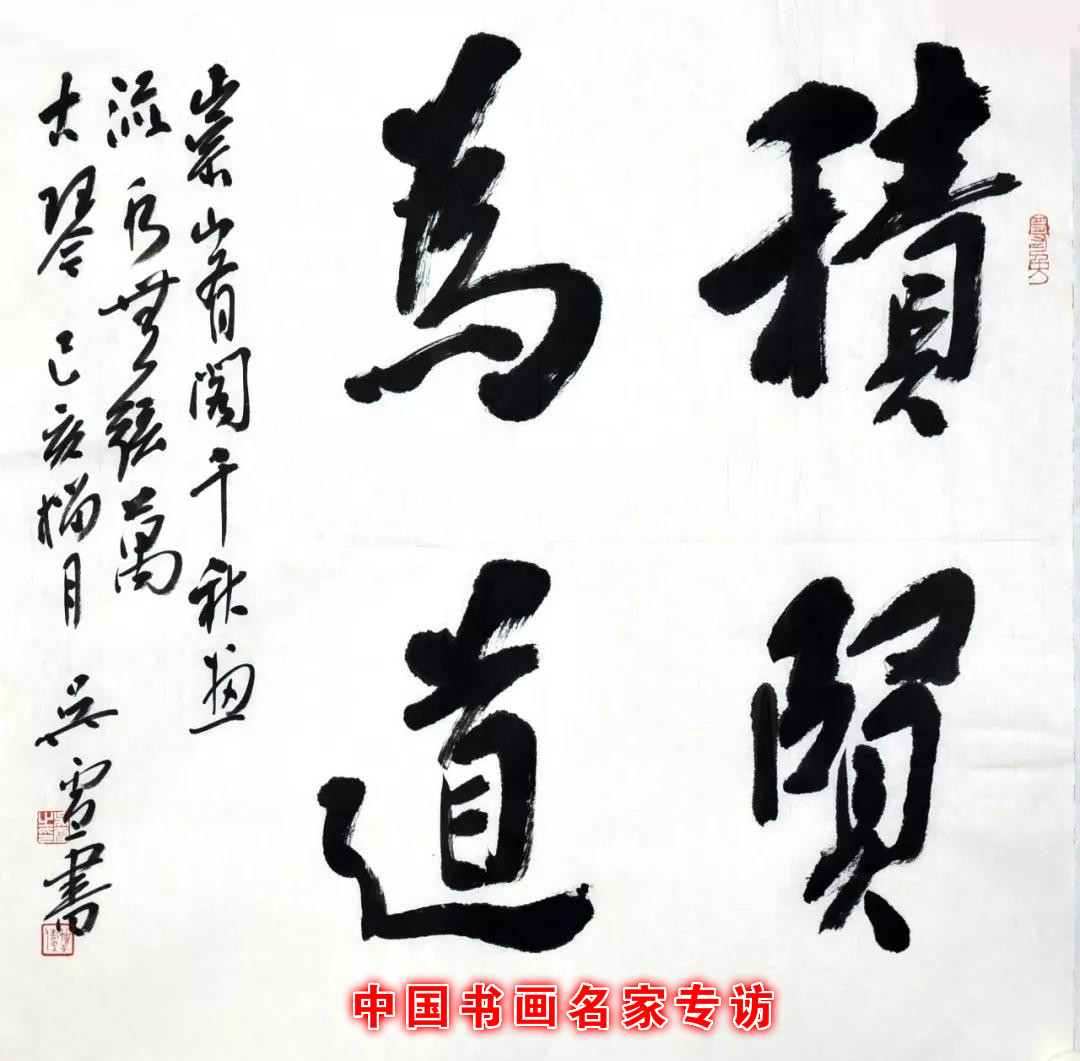 積賢
為道
崇山有閣千秋畫
流水無弦萬
古琴 己亥榴月 吳雪書
中国书画名家专访